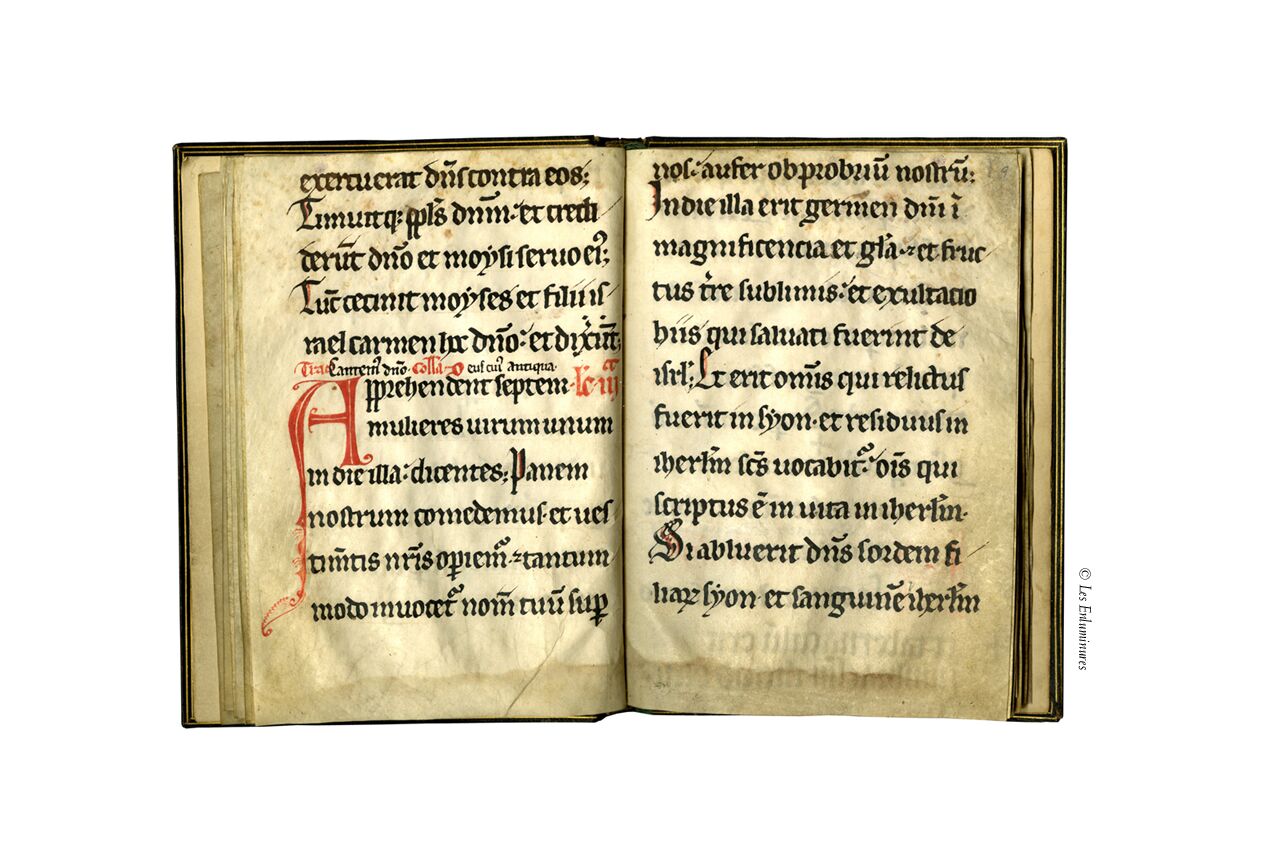 exercuerat dn̄s contra eos;
Timuitq; ppl̄s dn̄m· et credi
derūt dn̄o et moysi seruo eiꝰ;
Tūc cecinit moyses et filii is
rael carmen hoc dn̄o· et dixer̄t;
Trac Cantemꝰ dn̄o· Coll̄a· D eus cuiꝰ antiqua·
Apprehendent septem· lc̄ iii
mulieres uirum unum
in die illa· dicentes; Panem
nostrum comedemus· et ues
tim̄tis nr̄is operiemᷣ· ⁊ tantum
modo inuocetᷣ nom̄ tuū suꝑ
nos· aufer obprobriū nostrū;
9
In die illa erit germen dn̄i ī
magnificencia et gl̄a· ⁊ et fruc
tus tr̄re sublimis· et exultacio
hiis qui saluati fuerint de
isrl̄; Et erit omīs qui relictus
fuerit in syon· et residuus in
iherl̄m sc̄s uocabitᷣ· oīs qui
scriptus ē in uita in iherl̄m·
Si abluerit dn̄s sordem fi
liaꝝ syon· et sanguinē iherl̄m
© Les Enluminures